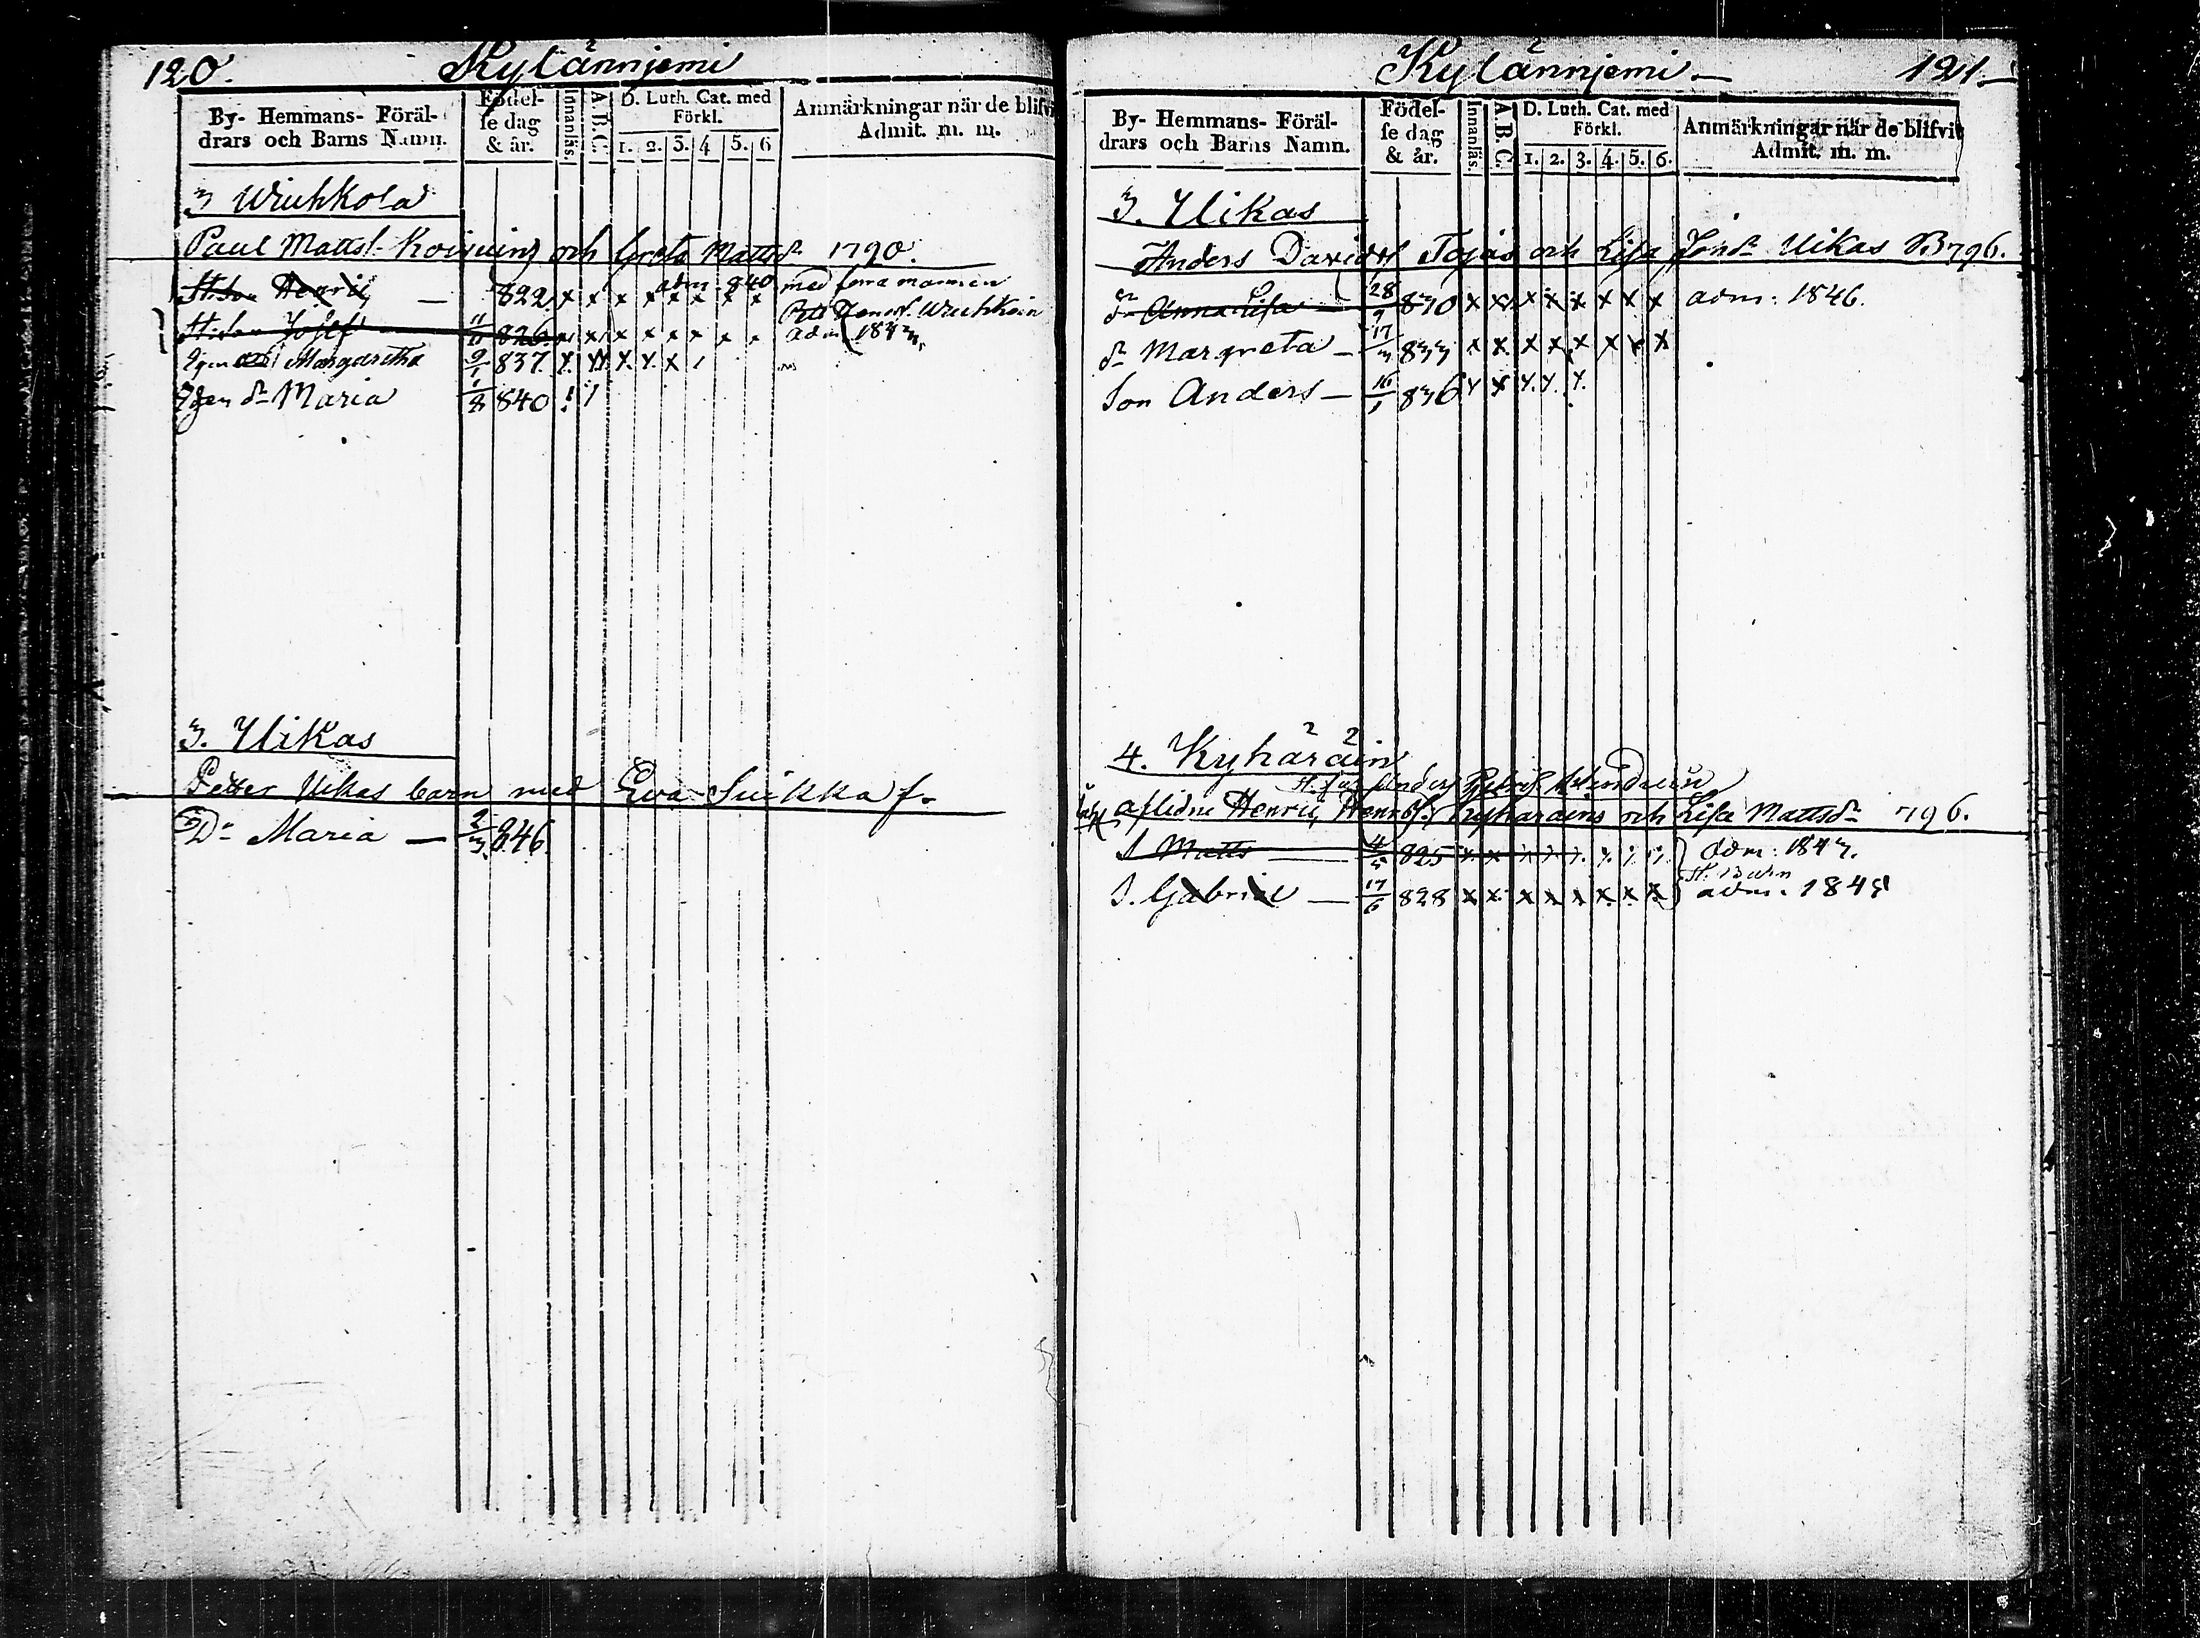 120. Kylänniemi
By- Hemmans- Föräl-
drars och Barns Namn.
Födel-
se dag
& år.
Innanläs.
A B C
D. Luth. Cat. med
Förkl.
1. 2. 3. 4 5. 6
Anmärkningar när de blifvi
Admit. m. m.
3 Wirukkola
Paul Matts. och Greta Mattsdr 1790.
St. Son Henric — 822 x x x x x x x x adm. 840 med förra mannen
St. Son Josef 826 x x x x x x x x adm 1843.
Egen dr Margaretha 9/1 837. x. x x. x. x 1
Egen dr Maria 1/2 840 1 1
3. Uikas
Petter Uikas barn med Eva Suikka f.
Dr Maria — 2/3 846.
Kylänniemi — 121 —
By- Hemmans- Föräl-
drars och Barns Namn.
Födel-
se dag
& år.
Innanläs.
A B C
D. Luth. Cat. med
Förkl.
1. 2. 3. 4. 5. 6.
Anmärkningar när de blifvit
Admit. m. m.
3. Uikas
Anders Davids Tojas och Lisa Jonsdr Uikas B 796.
dr Anna Lisa 28/9 830 x x x x x x x x adm: 1846.
dr Margreta — 17/3 833 x x x x x x x x
Son Anders — 16/1 836 x x x. x. x.
4. Kyhäräin
St. far Anders
aflidne Henric Henrics. Kyhäräins och Lisa Mattsdr 796.
S Matts — 4/3 825 x x x x x x x x adm: 1843.
St. Barn
S. Gabriel — 17/6 828 x x x x x x x x adm. 1845